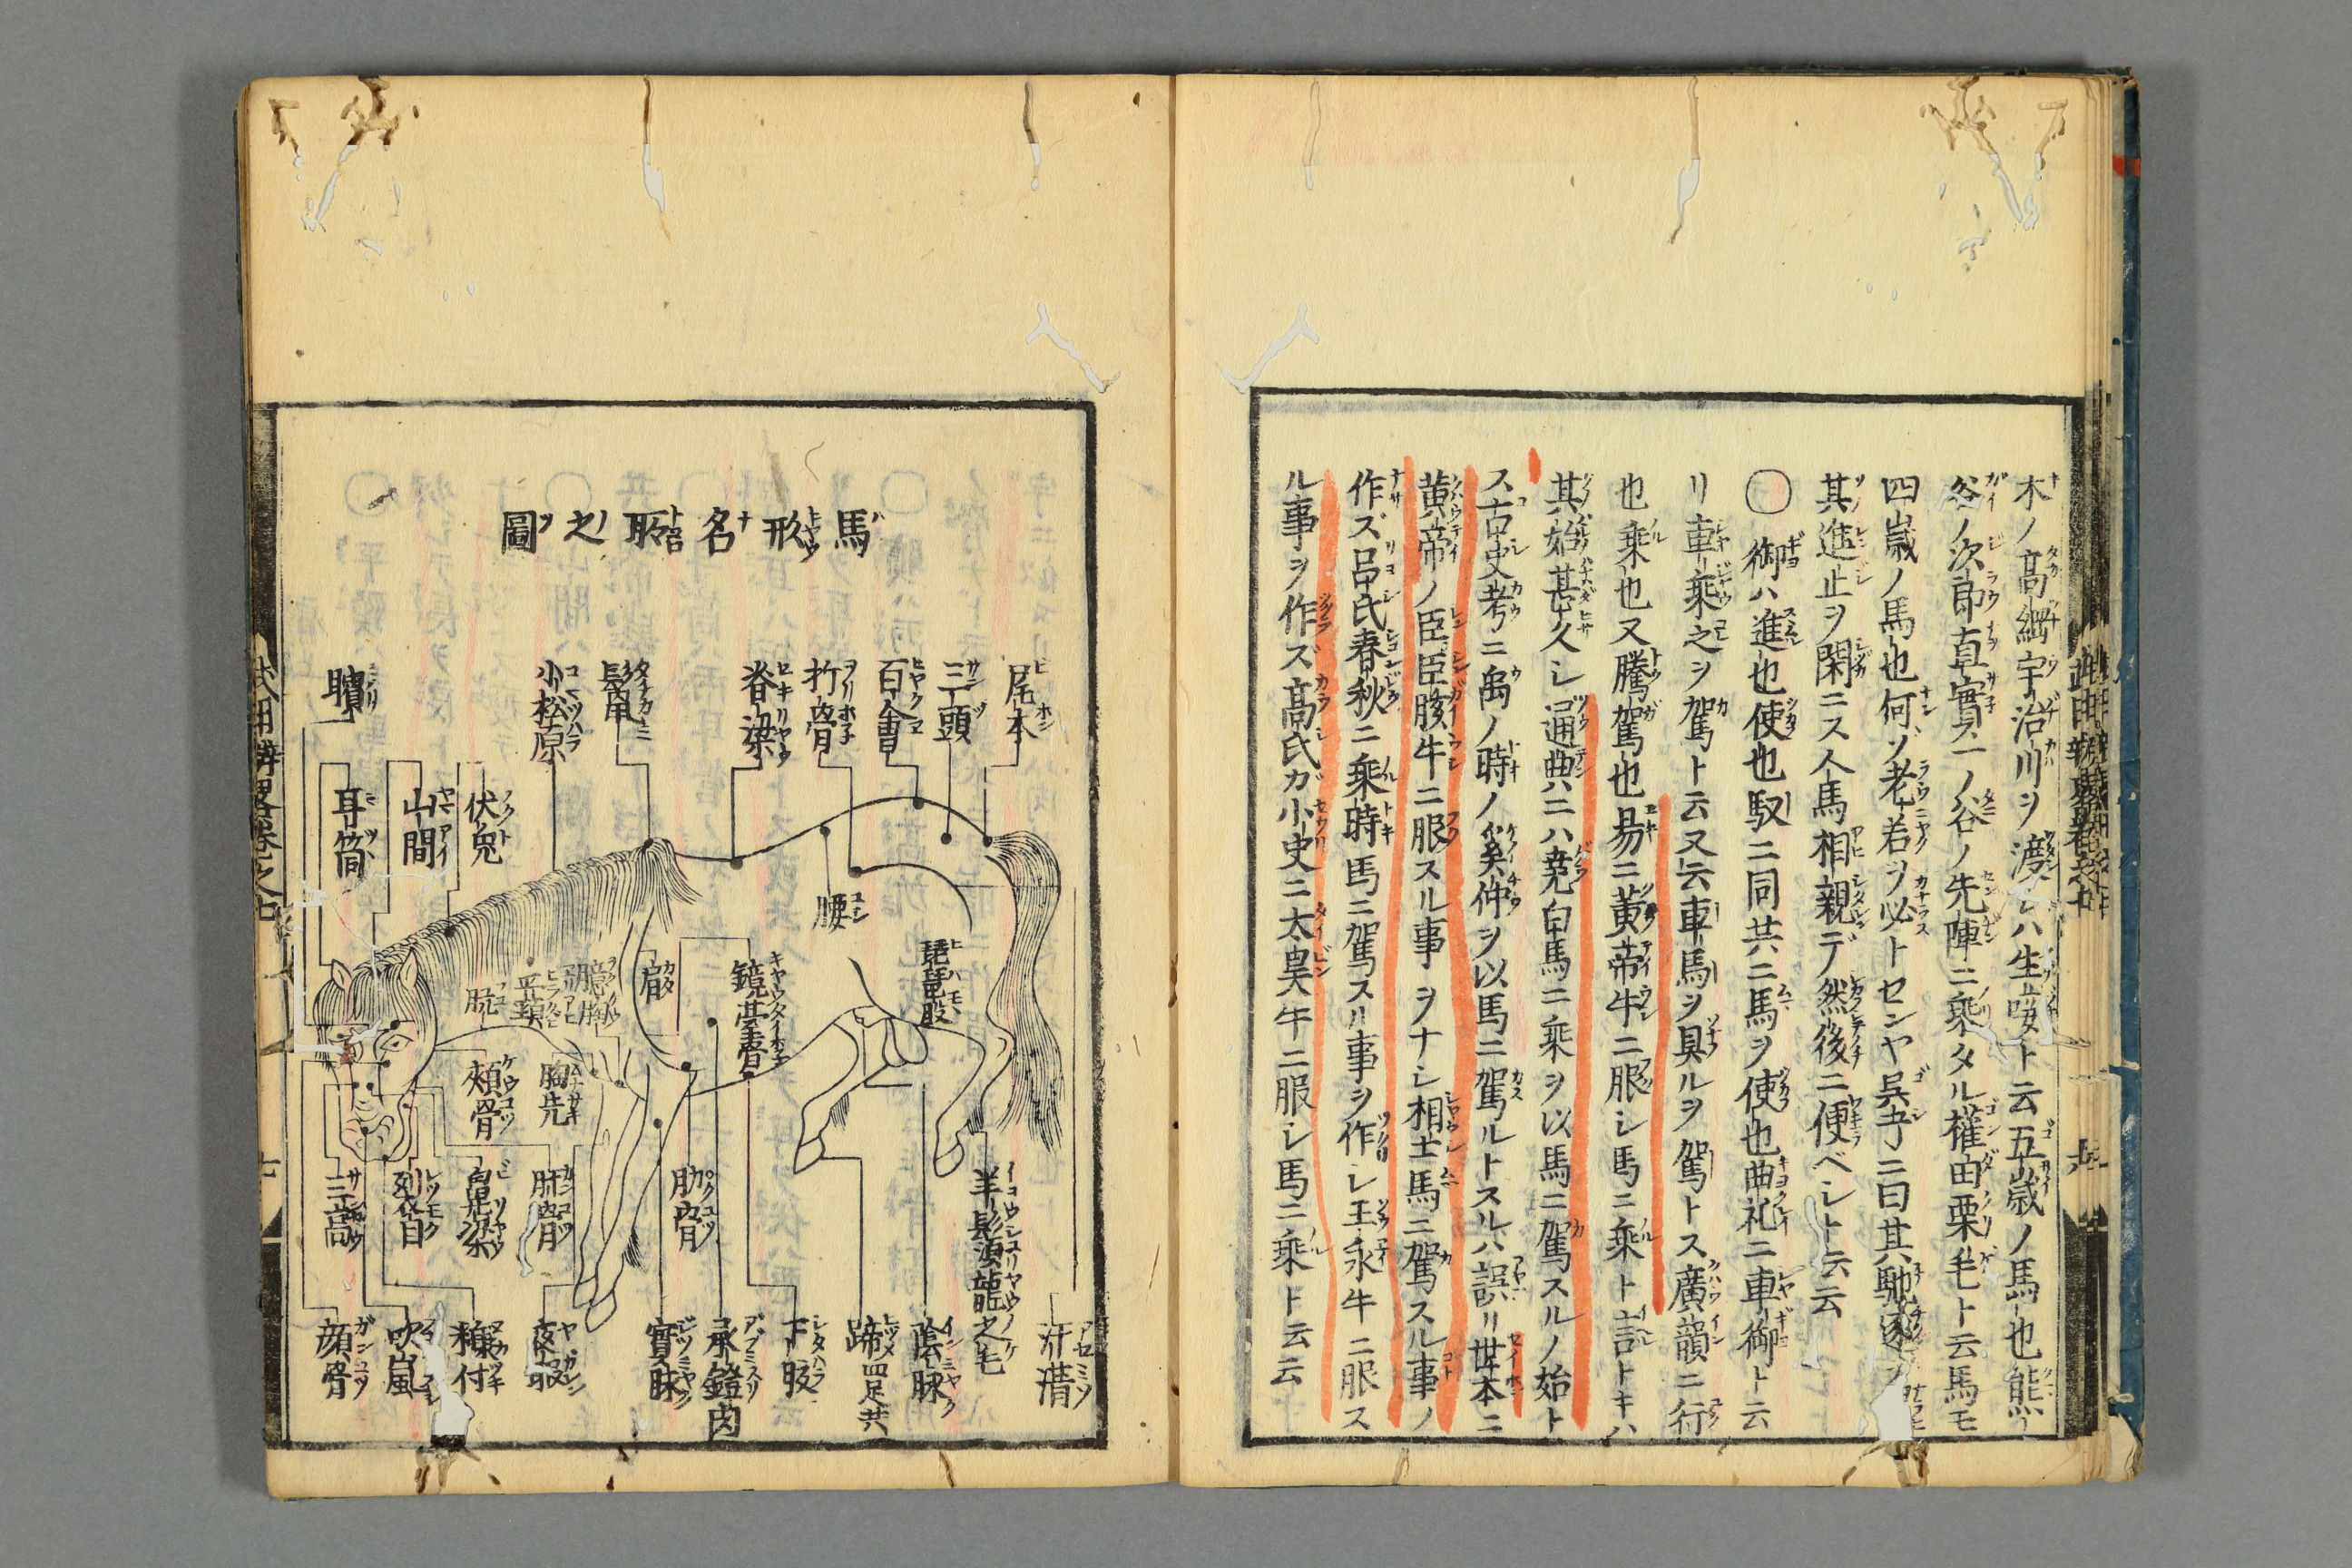 木ノ高綱宇治川ヲ渡シハ生唼ト云五歳ノ馬也熊
谷ノ次郎直實一ノ谷ノ先陣ニ乗タル權田栗毛ト云馬モ
四歳ノ馬也何ソ老若ヲ必トセンヤ呉子ニ曰其馳逐ヲ
其進止ヲ閑ニス人馬相親デ然後ニ便ベシト云云
〇御ハ進也使也馭ニ同共ニ馬ヲ使也曲礼ニ車御ト云
リ車乗之ヲ駕ト云又云車馬ヲ具ルヲ駕トス廣韻ニ行
也乗也又騰駕也易ニ黄帝牛ニ服シ馬ニ乗ト言トキハ
其始甚久シ通典ニハ堯白馬ニ乗ヲ以馬ニ駕スルノ始ト
ス古史考ニ禹ノ時ノ奚仲ヲ以馬ニ駕ルトスルハ誤リ世本ニ
黄帝ノ臣臣胲牛ニ服スル事ヲナシ相土馬ニ駕スル事ノ
作ズ呂氏春秋ニ乗時馬ニ駕スル事ヲ作シ王氷牛ニ服ス
ル事ヲ作ズ高氏ガ小史ニ太昊牛ニ服シ馬ニ乗ト云云
馬形名所之圖
尾本
三頭
百會
折骨
脊梁
髾甲
小松原
伏兎
山間
耳筒
腰
琵琶股
鏡臺骨
肩
平頸
胸先
頬骨
羊髭須龍之毛
肋骨
肝骨
鼻梁
列目
三高
汗溝
陰脉
蹄四足共
下腹
承鐙肉
實脉
夜眼
糠付
吹嵐
顔骨